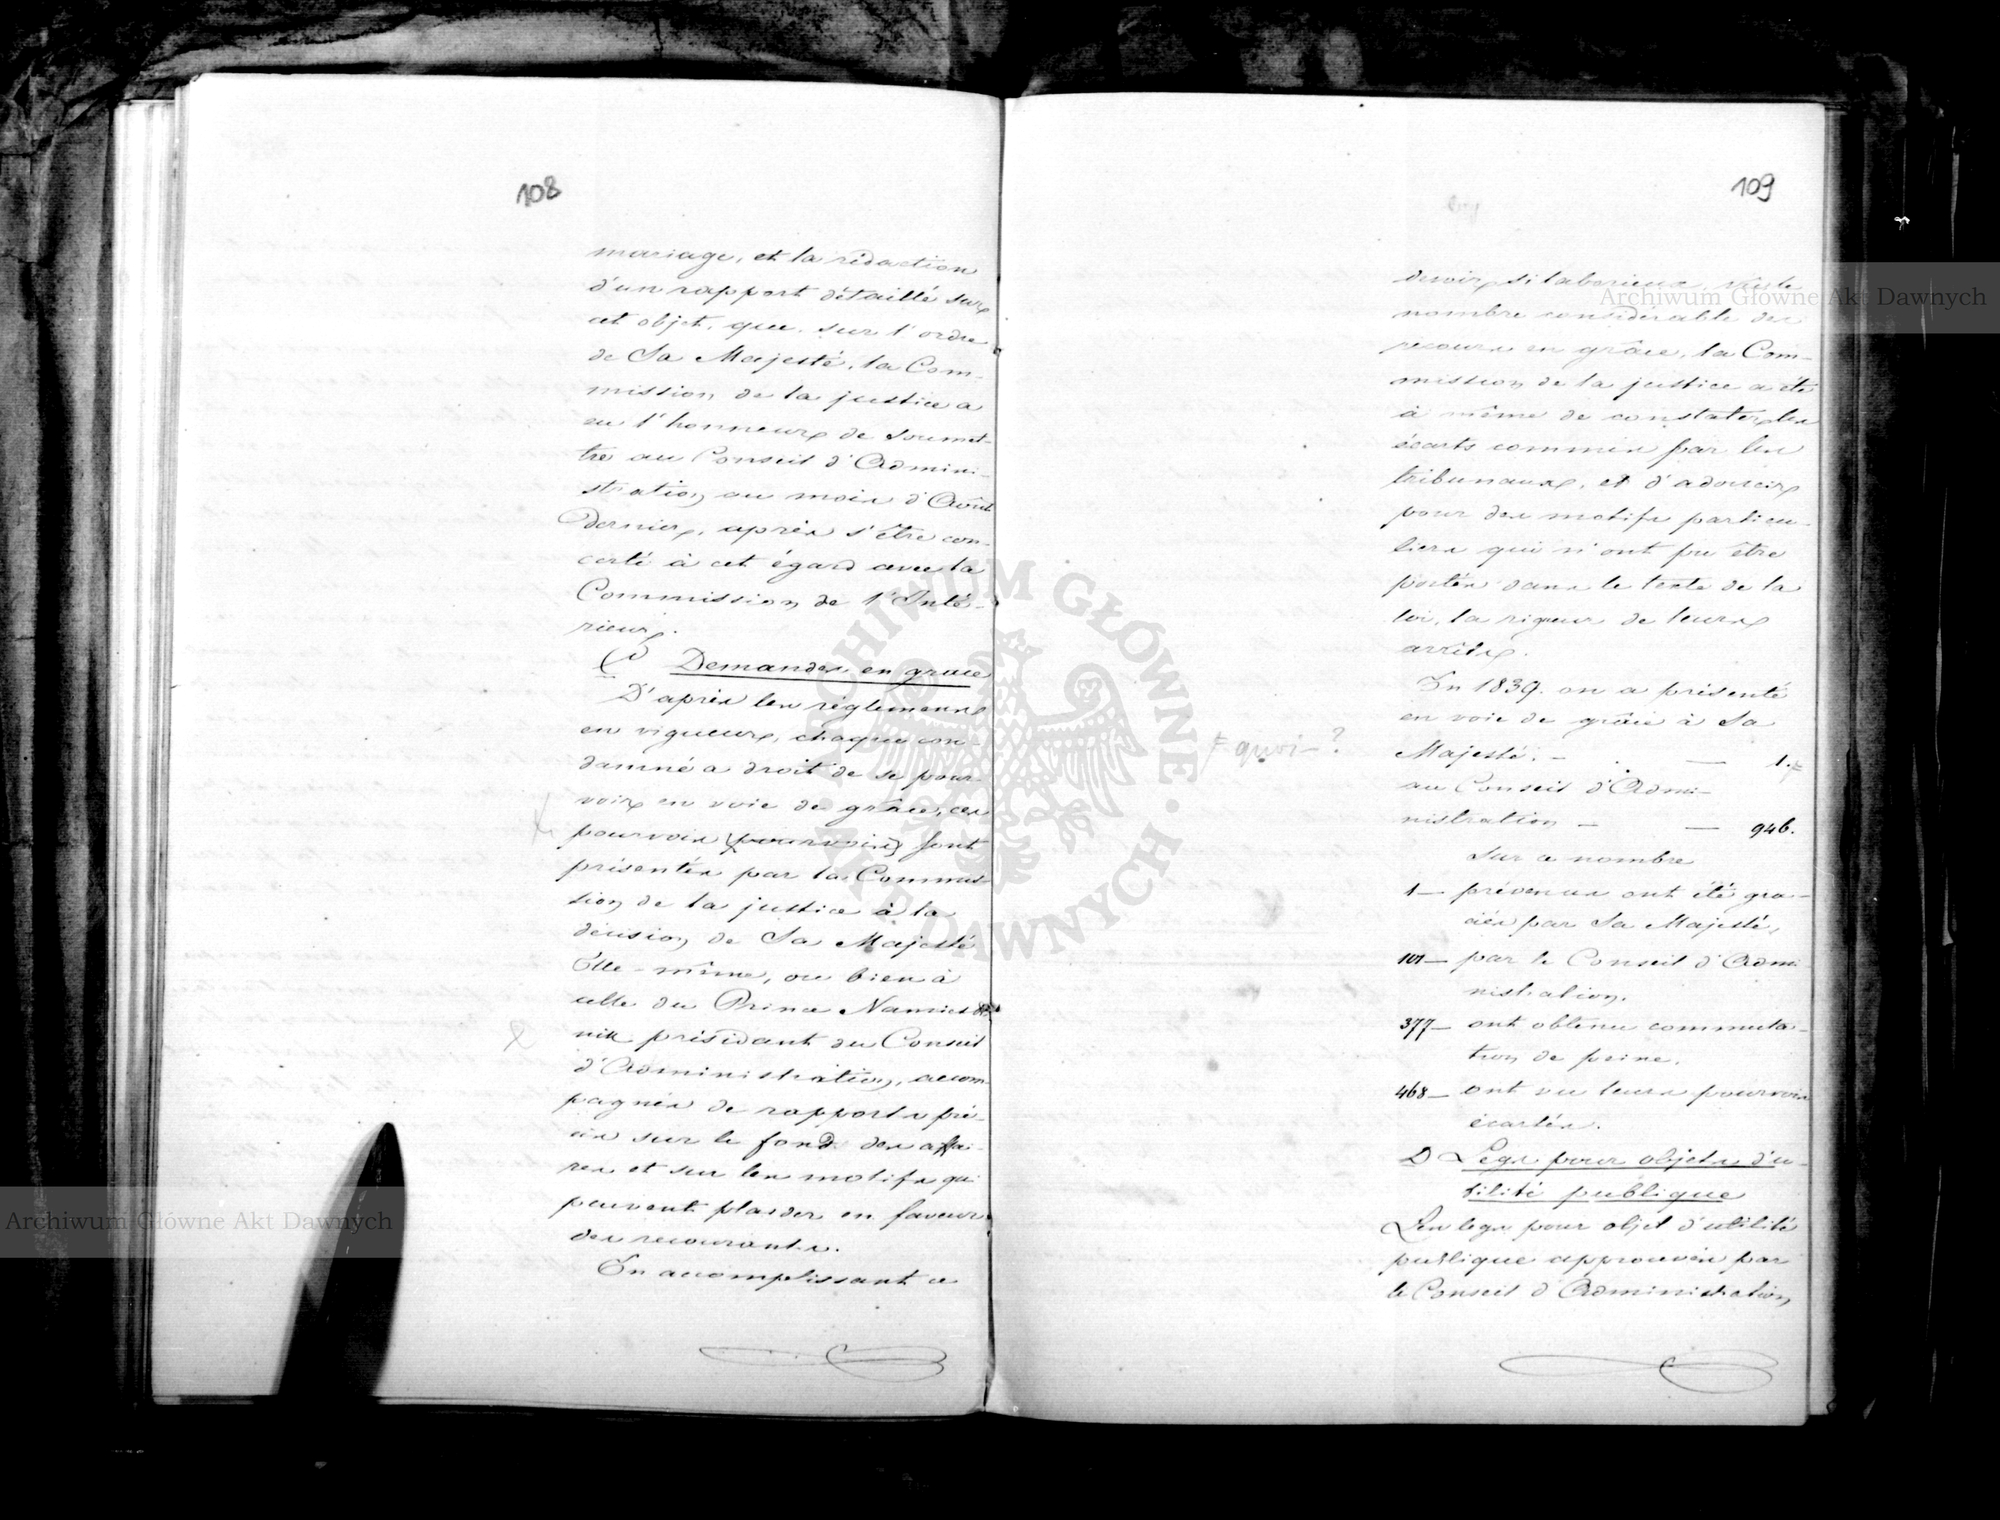 108
mariage, et la rédaction
d'un rapport détaillé sur
cet objet, que, sur l'ordre
de Sa Majesté, la Com-
mission de la justice a
eu l'honneur de soumet-
tre au Conseil d'Admini-
stration au mois d'Août
dernier, après s'être con-
certé à cet égard avec la
Commission de l'Inté-
rieur.
Demandes en grace
D'après les réglemens
en vigueur, chaque con-
damné a droit de se pour-
voir en voie de grâce, ces
pourvois (pourvoirs) sont
présentés par la Commis-
sion de la justice à la
décision de Sa Majesté
Elle-même, ou bien à
celle du Prince Namiest-
nik présidant du Conseil
d'Administration, accom-
pagnés de rapports pré-
cis sur le fond des affai-
res et sur les motifs qui
peuvent plaider en faveur
des recourants.
En accomplissant ce
109
devoir si laborieux, vû le
nombre considérable des
recours en grâce, la Com-
mission de la justice a été
à même de constater les
écarts commis par les
tribunaux, et d'adoucir
pour des motifs particu-
liers qui n'ont pu être
portés dans le texte de la
loi, la rigueur de leurs
arrêts.
En 1839. on a présenté
en voie de grâce à Sa
Majesté. — — 1.
quoi - ?
au Conseil d'Admi-
nistration — — 946.
Sur ce nombre
1 — prévenus ont été gra-
ciés par Sa Majesté,
101 — par le Conseil d'Admi-
nistration.
377 — ont obtenu commuta-
tion de peine.
468 — ont vu leurs pourvois
écartés.
D Legs pour objets d'u-
tilité publique
Les legs pour objet d'utilité
publique approuvés par
le Conseil d'Administration
Archiwum Główne Akt Dawnych
Archiwum Główne Akt Dawnych
ARCHIWUM GŁÓWNE AKT DAWNYCH